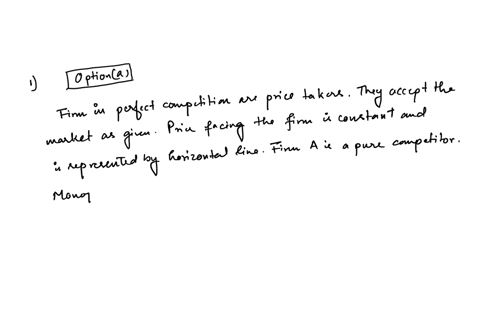 1) Option(a)
Firm in perfect competition are price takers. They accept the
market as given. Price facing the firm is constant and
is represented by horizontal line. Firm A is a pure competitor.
Monop